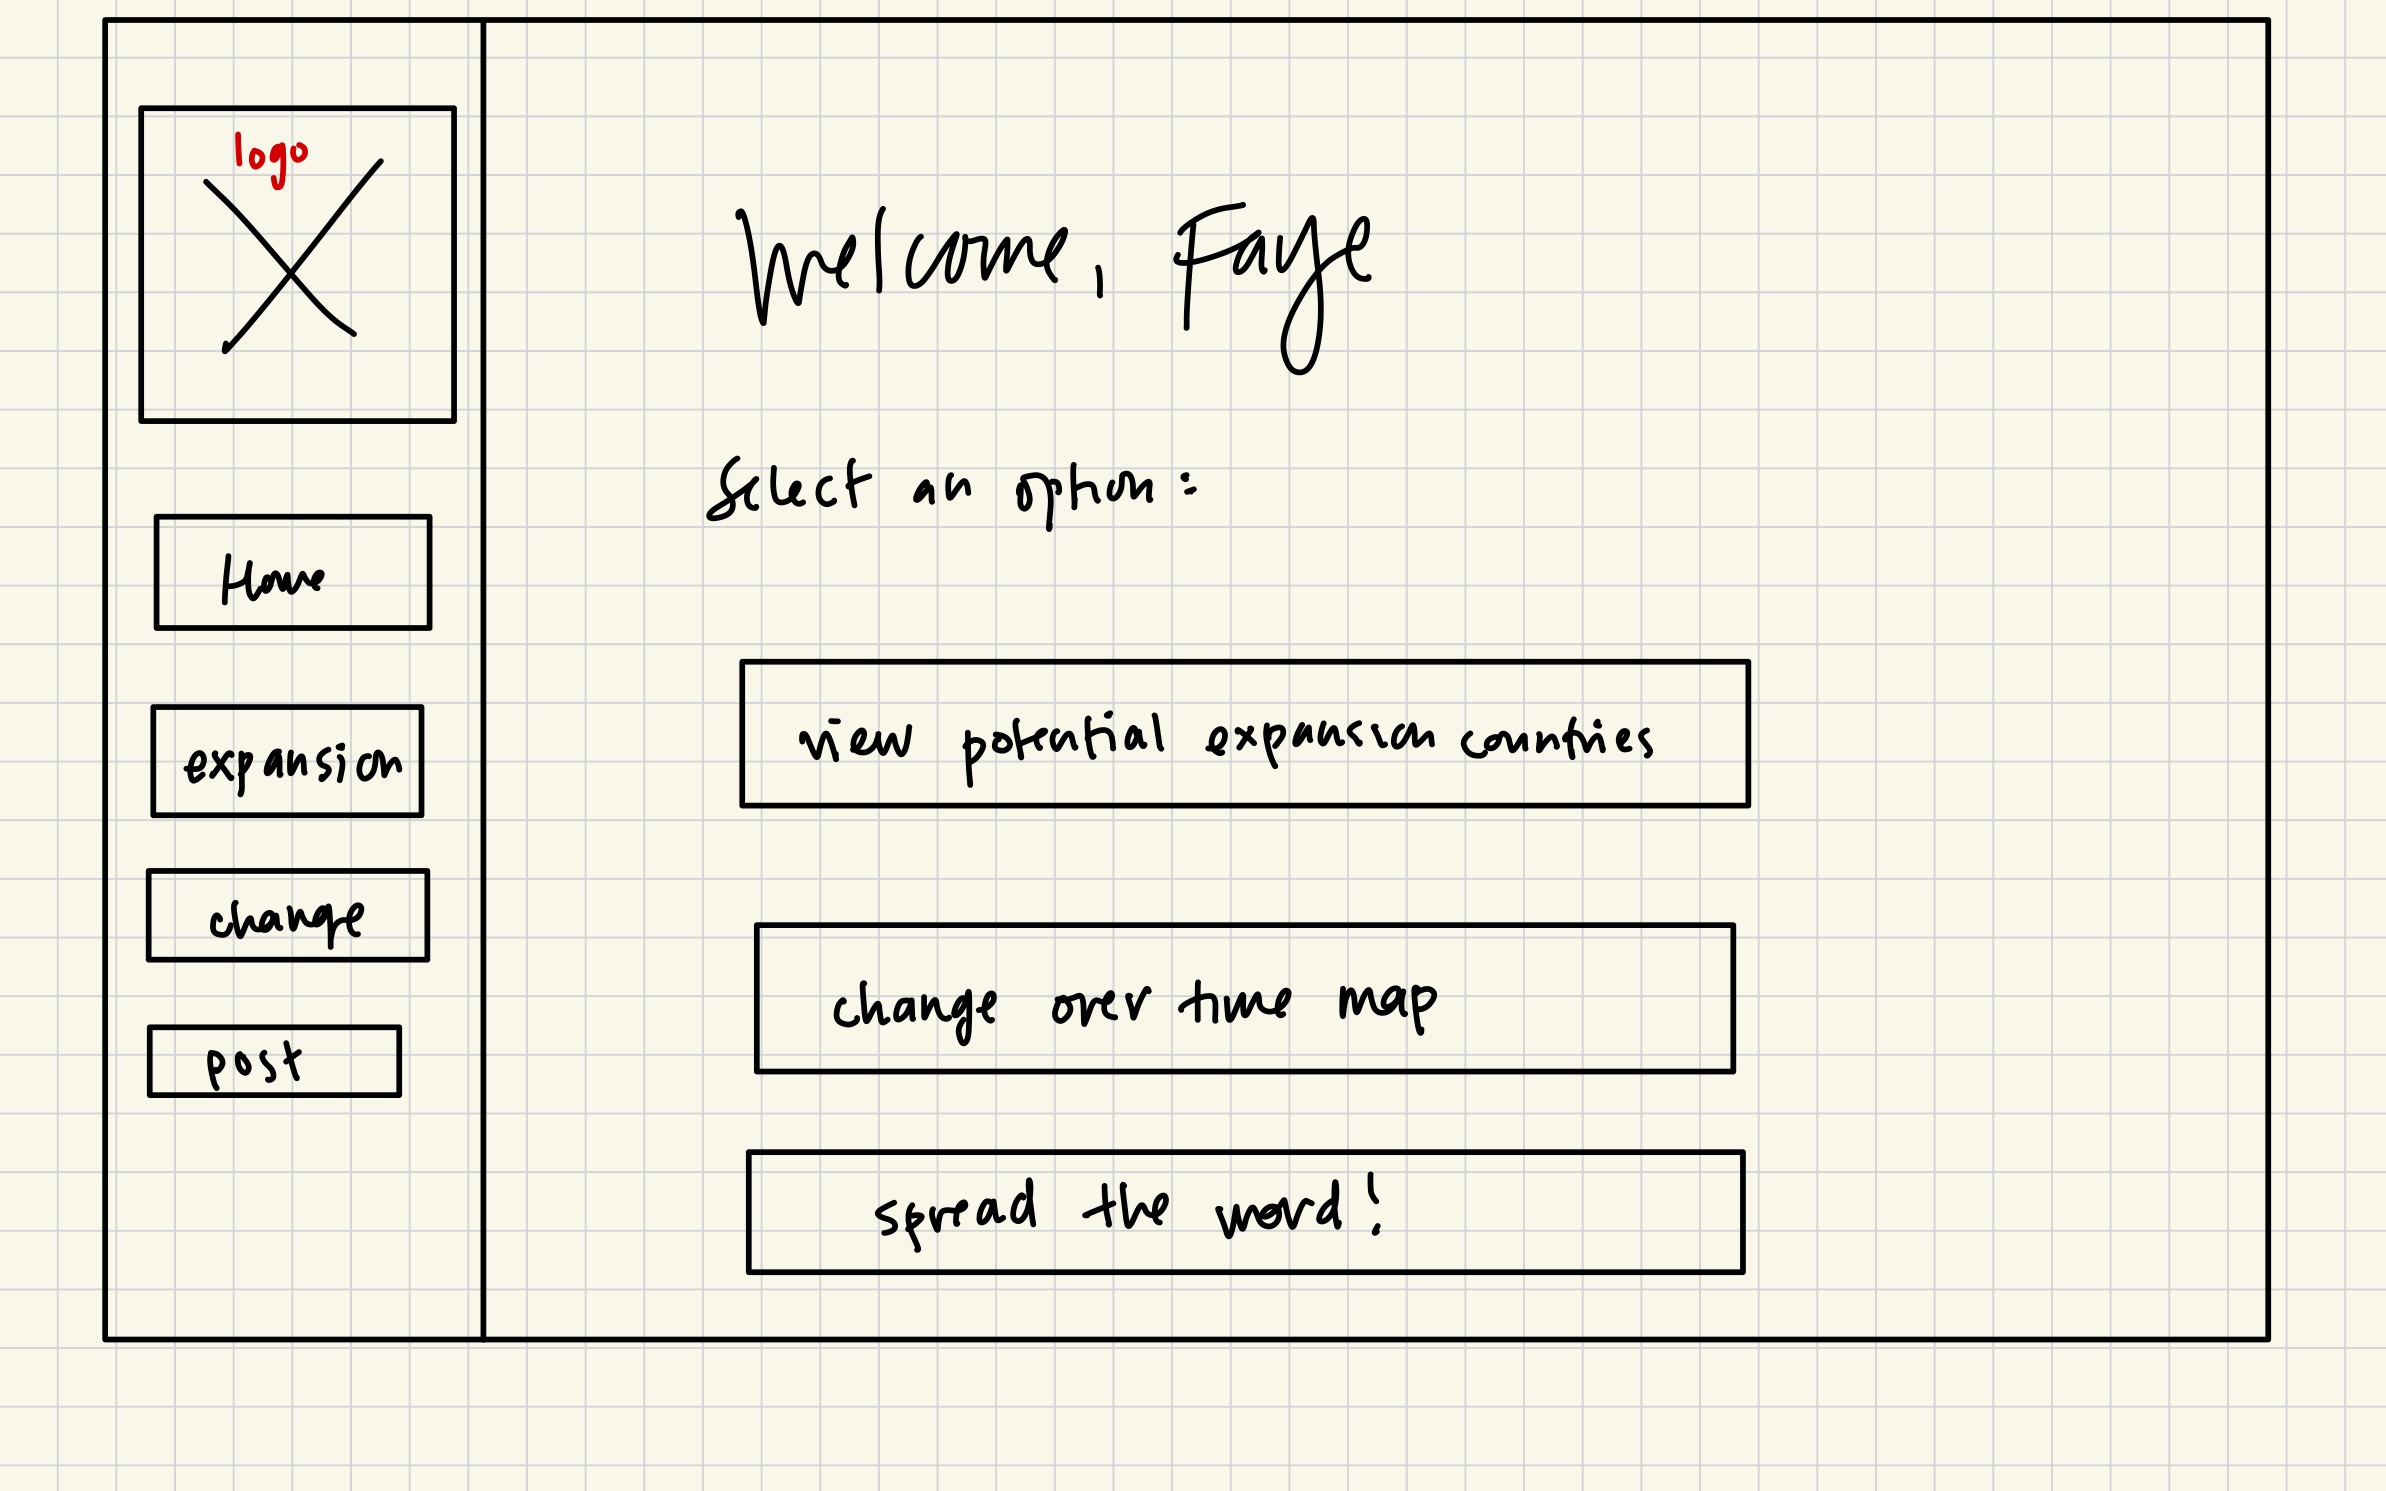 logo
Home
expansion
change
post
Welcome, Faye
Select an option:
view potential expansion countries
change over time map
spread the word!